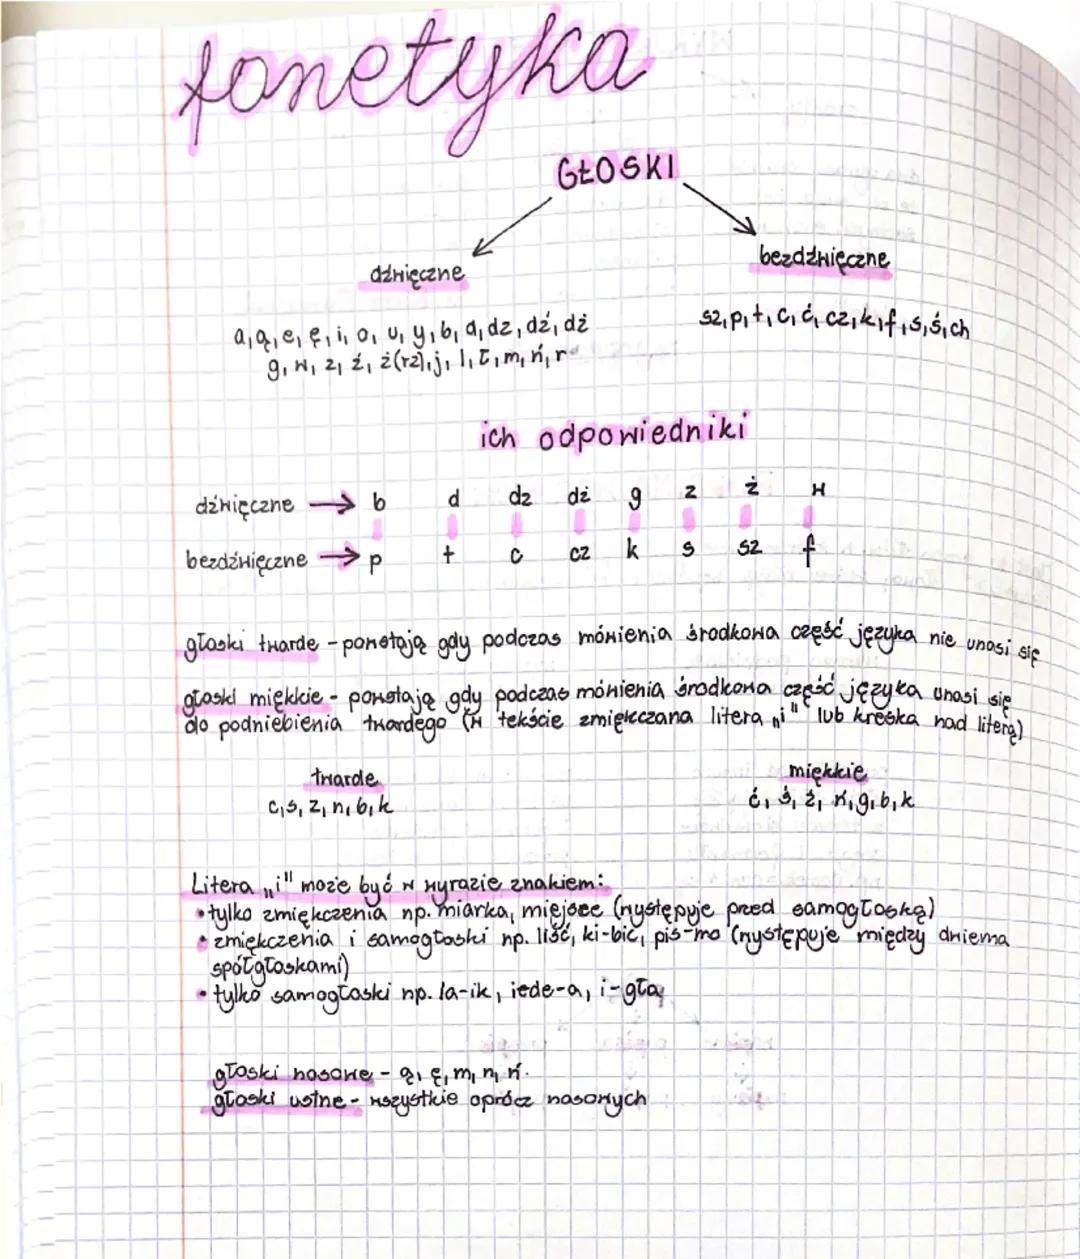 fonetyka
GŁOSKI
dźwięczne
bezdźwięczne
a, ą, e, ę, i, o, u, y, b, d, dz, dź, dż
g, w, z, ź, ż(rz), j, l, ł, m, ń, r
sz, p, t, c, ć, cz, k, f, s, ś, ch
ich odpowiedniki
dźwięczne → b d dz dż g z ż w
bezdźwięczne → p t c cz k s sz f
głoski twarde - powstają gdy podczas mówienia środkowa część języka nie unosi się
głoski miękkie - powstają gdy podczas mówienia środkowa część języka unosi się
do podniebienia twardego (w tekście zmiękczana literą "i" lub kreską nad literą)
twarde
miękkie
c, s, z, n, b, k
ć, ś, ź, ń, g, b, k
Litera "i" może być w wyrazie znakiem:
• tylko zmiękczenia np. miarka, miejsce (występuje przed samogłoską)
• zmiękczenia i samogłoski np. liść, ki-bić, pis-mo (występuje między dwiema
spółgłoskami)
• tylko samogłoski np. la-ik, iede-a, i-gła
głoski nosowe - ą, ę, m, n, ń.
głoski ustne - wszystkie oprócz nosowych